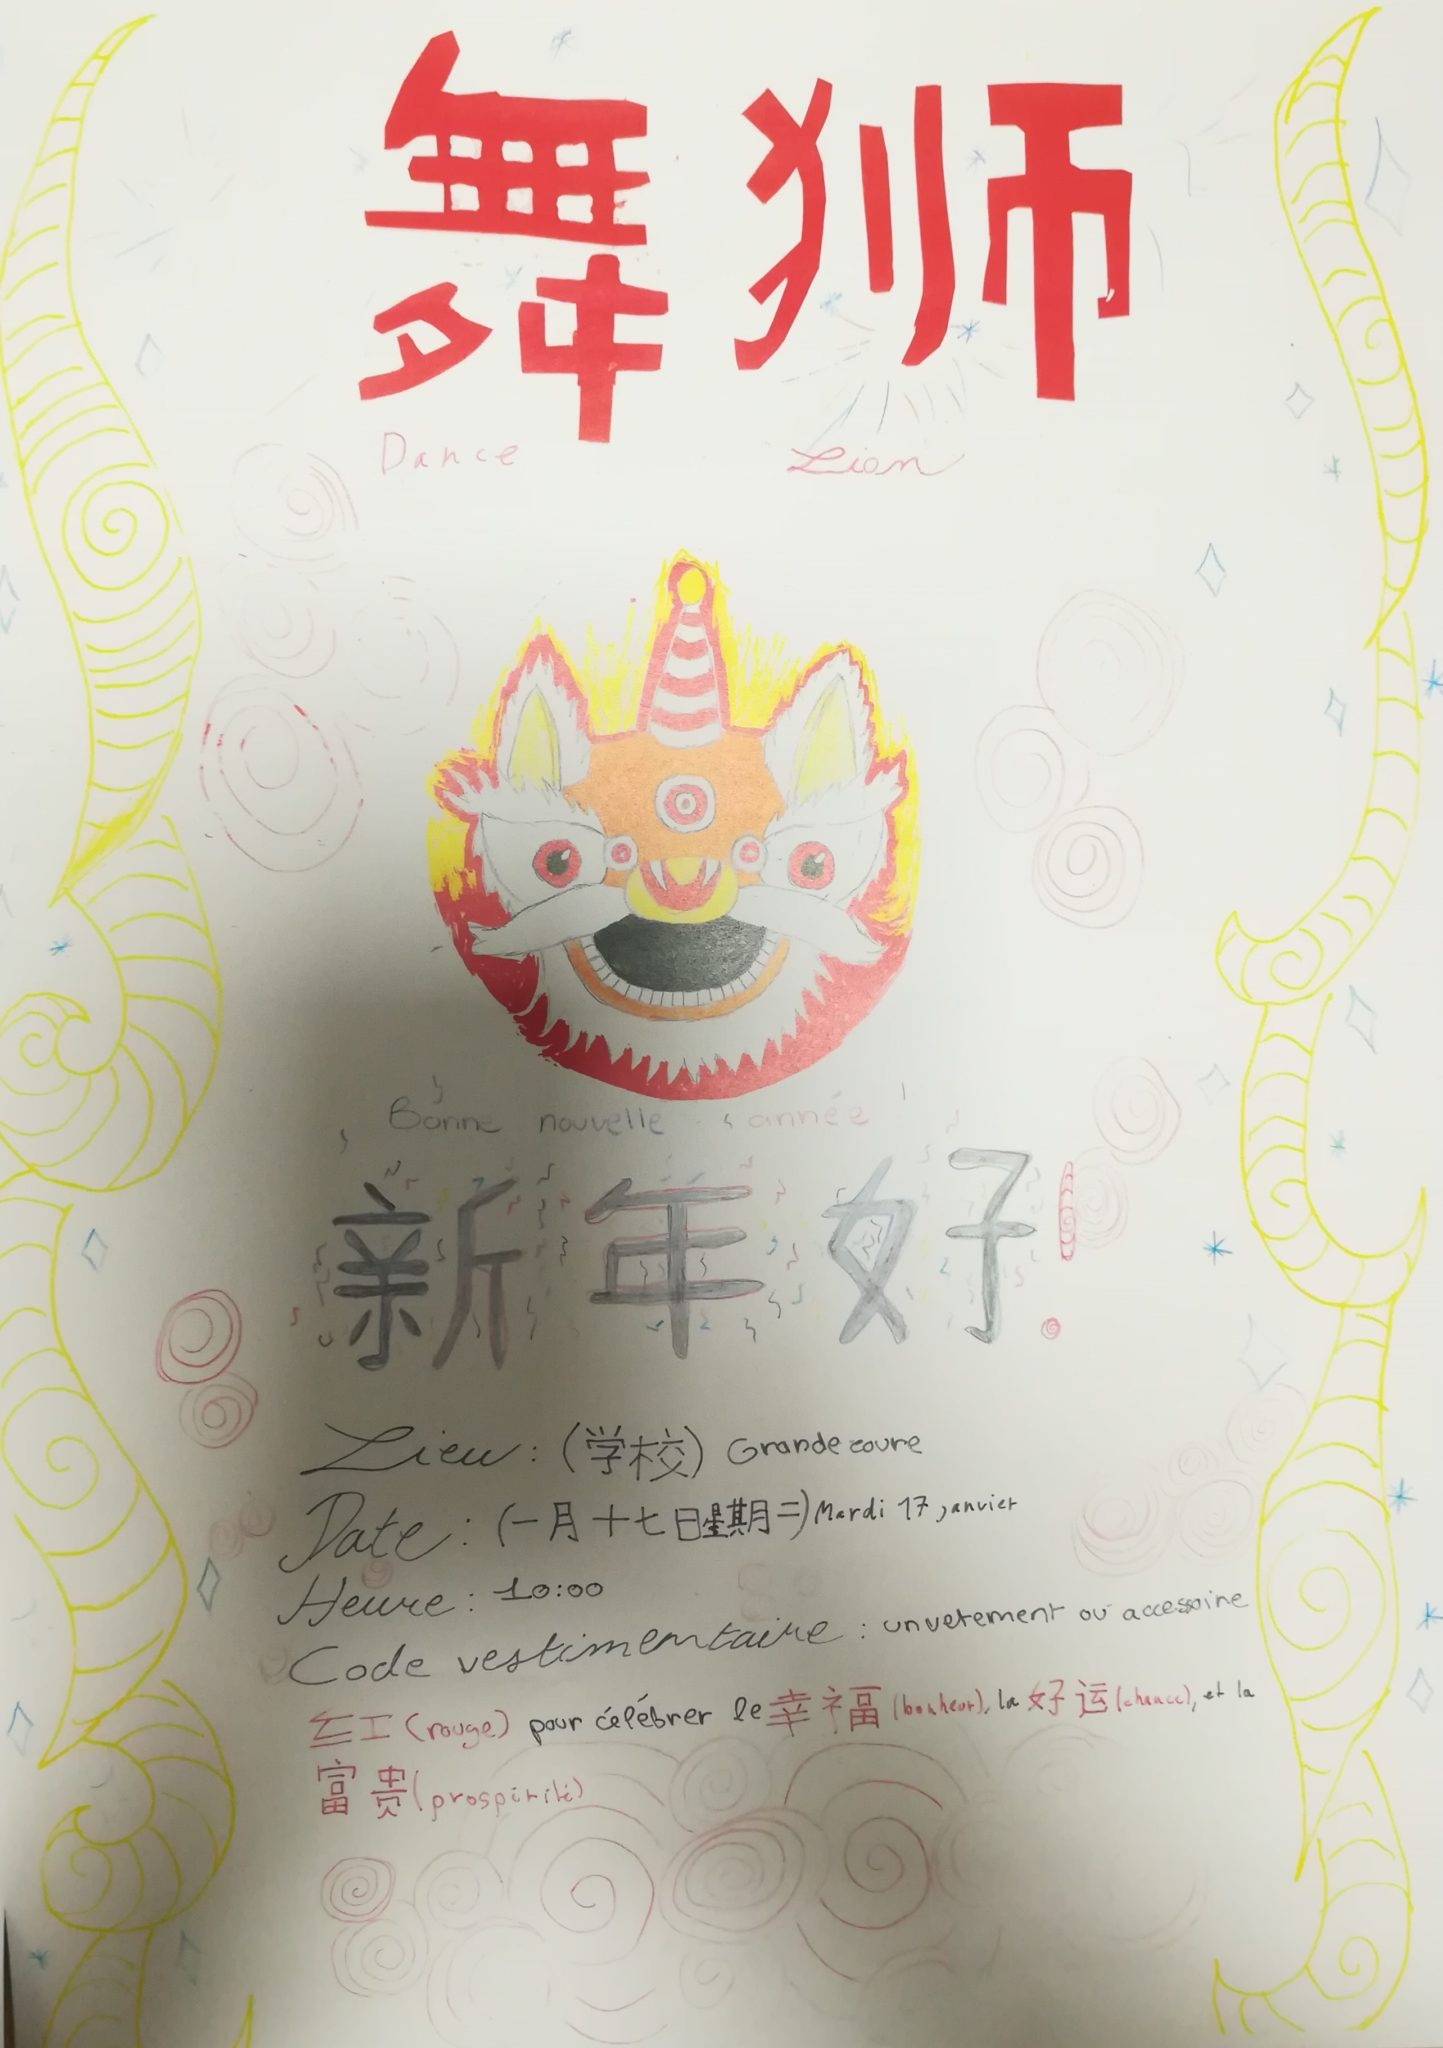 舞狮
Dance Lion
Bonne nouvelle année
新年好!
Lieu : (学校) Grande coure
Date : (一月十七日星期二) Mardi 17 janvier
Heure : 10:00
Code vestimentaire : un vetement ou accessoire
红 (rouge) pour célébrer le 幸福 (bonheur), la 好运 (chance), et la
富贵 (prospirité)